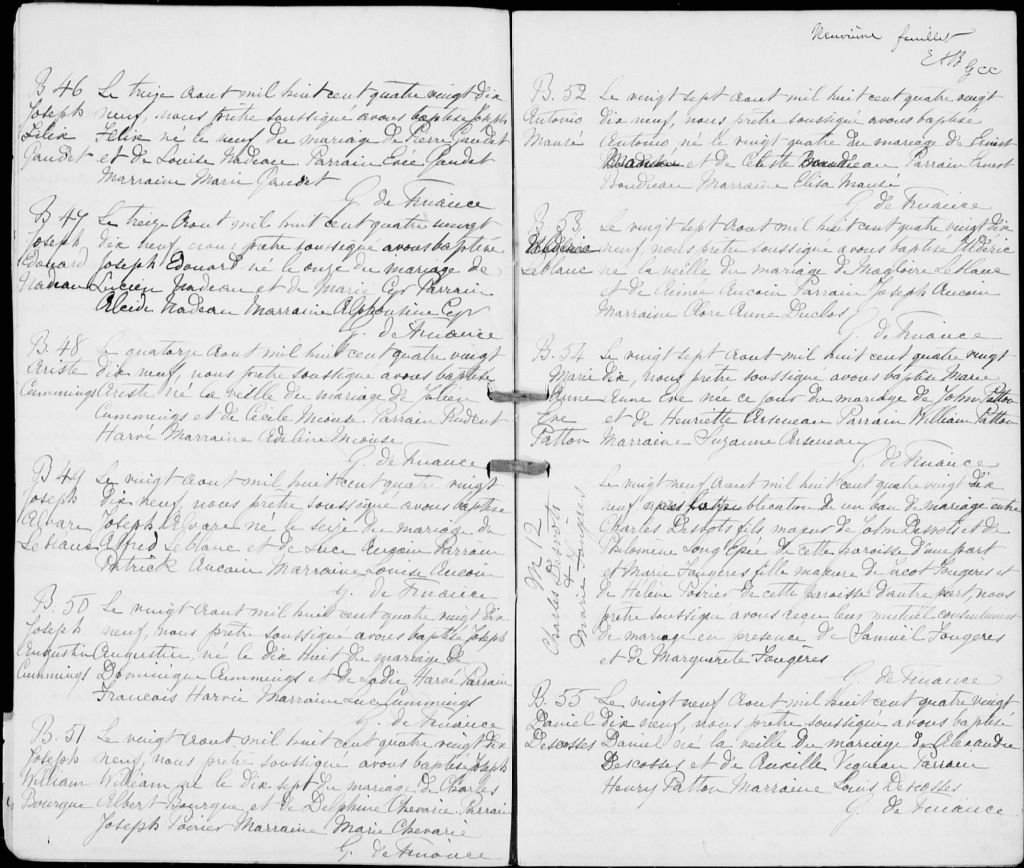 B 46 Le treize Aout mil huit cent quatre vingt dix
Joseph neuf, nous prêtre soussigné avons baptise Joseph
Felix Félix né le neuf du mariage de Pierre Gaudet
Gaudet et de Louise Nadeau Parrain Evée Gaudet
Marraine Marie Gaudet
G. de Finance
B. 47 Le treize Aout mil huit cent quatre vingt
Joseph dix neuf, nous prêtre soussigné avons baptisé
Edouard Joseph Edouard né le onze du mariage de
Nadeau Lucien Nadeau et de Marie Cyr Parrain
Alcide Nadeau Marraine Alphonsine Cyr
G. de Finance
B. 48 Le quatorze Aout mil huit cent quatre vingt
Ariste dix neuf, nous prêtre soussigné avons baptise
Cummings Ariste né la veille du mariage de Julien
Cummings et de Cecile Miouse Parrain Prudent
Harvé Marraine Adeline Miouse
G. de Finance
B 49 Le vingt Aout mil huit cent quatre vingt
Joseph dix neuf, nous prêtre soussigné avons baptise
Alvare Joseph Alvare né le seize du mariage de
Leblanc Alfred Leblanc et de Luce Aucoin Parrain
Patrick Aucoin Marraine Louise Aucoin
G. de Finance
B. 50 Le vingt Aout mil huit cent quatre vingt dix
Joseph neuf, nous prêtre soussigné avons baptise Joseph
Augustin Augustin, né le dix huit du mariage de
Cummings Dominique Cummings et de Ladie Harvie Parrain
Francois Harvie Marraine Luc Cummings
G. de Finance
B. 51 Le vingt Aout mil huit cent quatre vingt dix
Joseph neuf, nous prêtre soussigné avons baptise Joseph
William William né le dix sept du mariage de Charles
Bourque Albert Bourque et de Delphine Chevarie Parrain
Joseph Poirier Marraine Marie Chevarie
G. de Finance
Neuvième feuillet
EAB GCC
B. 52 Le vingt sept Aout mil huit cent quatre vingt
Antonio dix neuf, nous prêtre soussigné avons baptise
Mausé Antonio né le vingt quatre du mariage de Ernest
et de Celeste Boudreau Parrain Ernest
Boudreau Marraine Elisa Mausé
G. de Finance
B. 53 Le vingt sept Aout mil huit cent quatre vingt dix
neuf, nous prêtre soussigné avons baptise Uldéric
Leblanc né la veille du mariage d'Magloire Leblanc
et de Aimée Aucoin Parrain Joseph Aucoin
Marraine Clore Anne Duclos
G. de Finance
B. 54 Le vingt sept Aout mil huit cent quatre vingt
Marie dix, nous prêtre soussigné avons baptise Marie
Anne Anne Eve née ce jour du mariage de John Patton
Eve et de Henriette Arseneau Parrain William Patton
Patton Marraine Suzanne Arseneau
G. de Finance
M 12
Charles Desvots
&
Marie Fougères
Le vingt neuf Aout mil huit cent quatre vingt dix
neuf après la publication de un ban de mariage entre
Charles Desvots fils majeur de John Desvots et de
Philomène Long Epée de cette paroisse d'une part
et Marie Fougères fille majeure de Jacob Fougères et
de Helène Poirier de cette paroisse d'autre part, nous
prêtre soussigné avons reçu leur mutuel consentement
de mariage en presence de Samuel Fougères
et de Marguerite Fougères
G. de Finance
B. 55 Le vingt neuf Aout mil huit cent quatre vingt
Daniel dix neuf, nous prêtre soussigné avons baptisé
Descosses Daniel né la veille du mariage de Alexandre
Descosses et de Auxille Vigneau Parrain
Henry Patton Marraine Louis Descosses
G. de Finance